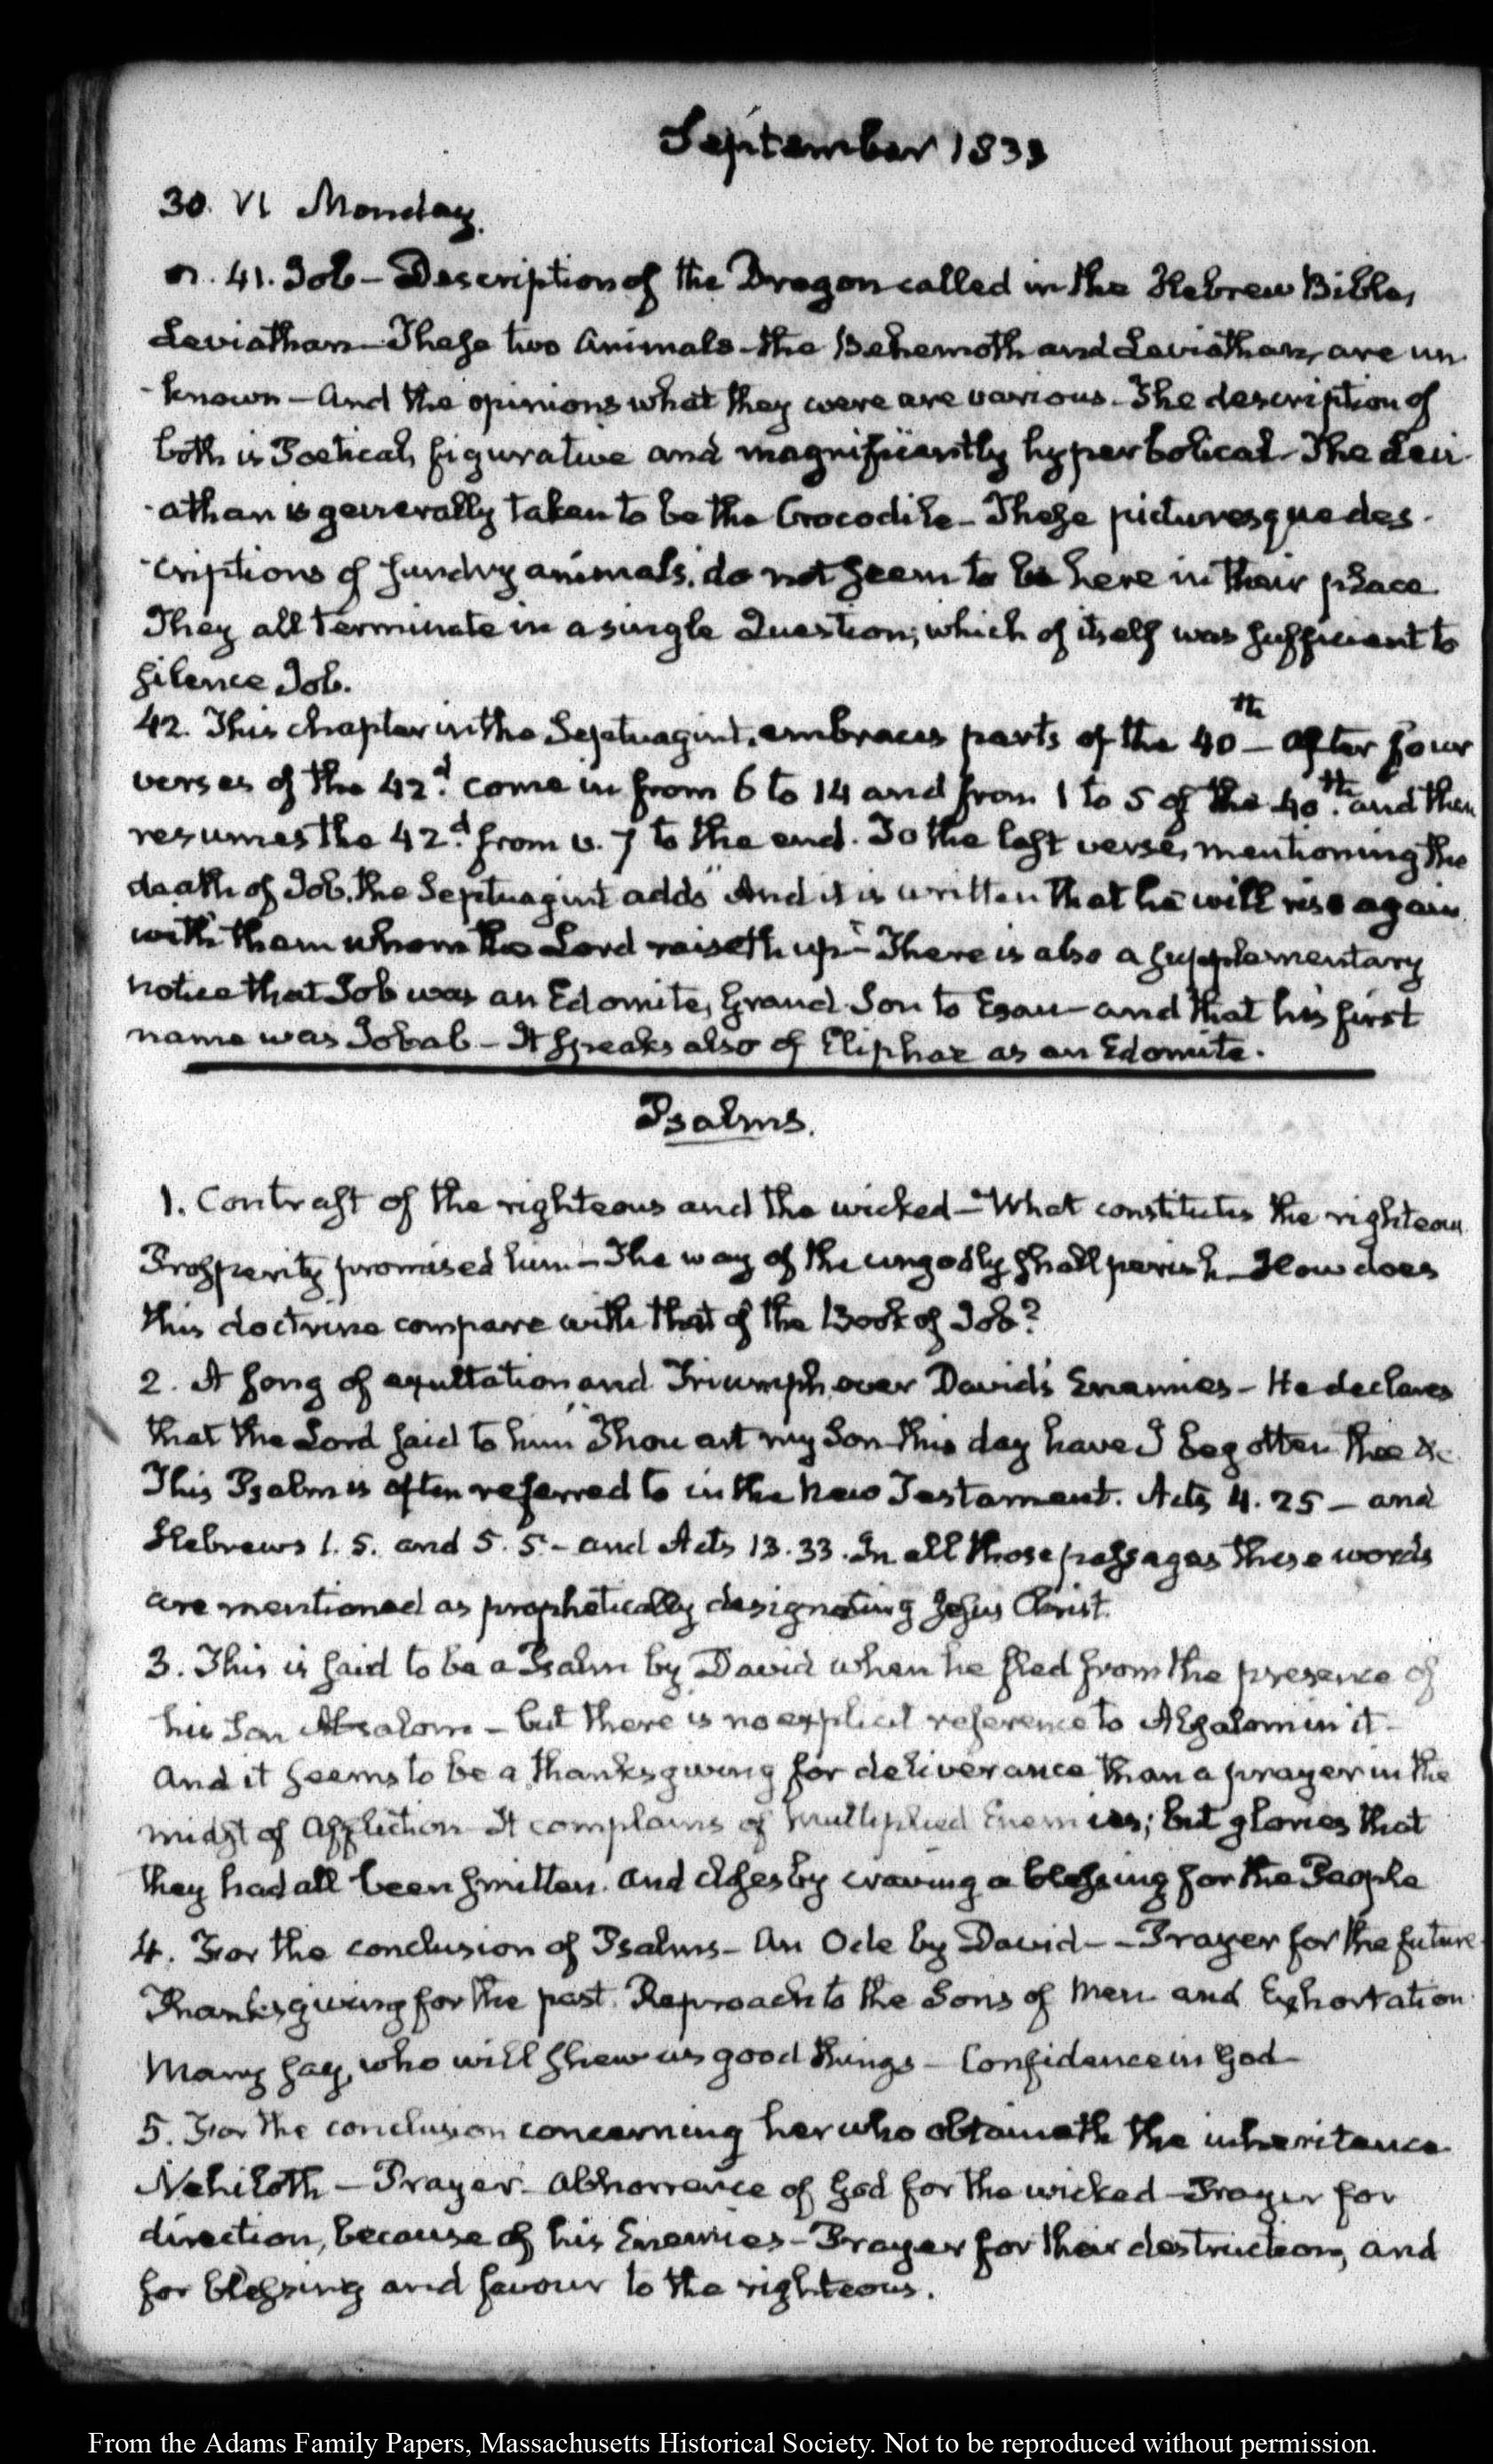 September 1833
30. VI Monday.
41. Job – Description of the Dragon called in the Hebrew Bible,
Leviathan – These two Animals – the Behemoth and Leviathan, are un
-known – And the opinions what they were are various – The description of
both is Poetical, figurative and magnificently hyperbolical – The Levi
-athan is generally taken to be the Crocodile – These picturesque des-
-criptions of sundry animals, do not seem to be here in their place
They all terminate in a single Question; which of itself was sufficient to
silence Job.
42. This chapter in the Septuagint, embraces parts of the 40th – after four
verses of the 42d. come in from 6 to 14 and from 1 to 5 of the 40th. and then
resumes the 42d. from v. 7 to the end. To the last verse, mentioning the
death of Job, the Septuagint adds "And it is written that he will rise again
with them whom the Lord raiseth up" – There is also a supplementary
notice that Job was an Edomite, Grand Son to Esau – and that his first
name was Jobab – It speaks also of Eliphaz as an Edomite.
Psalms.
1. Contrast of the righteous and the wicked – What constitutes the righteous
Prosperity promised him – The way of the ungodly shall perish – How does
this doctrine compare with that of the Book of Job?
2. A song of exultation and Triumph over David's Enemies – He declares
that the Lord said to him "Thou art my Son this day have I begotten thee &c
This Psalm is often referred to in the New Testament. Acts 4. 25 – and
Hebrews 1. 5. and 5. 5 – and Acts 13. 33. In all those passages these words
are mentioned as prophetically designating Jesus Christ.
3. This is said to be a Psalm by David when he fled from the presence of
his Son Absalom – but there is no explicit reference to Absalom in it –
And it seems to be a thanksgiving for deliverance than a prayer in the
midst of Affliction – It complains of multiplied Enemies; but glories that
they had all been smitten. and closes by craving a blessing for the People
4. For the conclusion of Psalms – An Ode by David – – Prayer for the future
Thanksgiving for the past. Reproach to the Sons of Men and Exhortation
Many say, who will shew us good things – Confidence in God –
5. For the conclusion concerning her who obtaineth the inheritance
Nehiloth – Prayer – Abhorrence of God for the wicked – Prayer for
direction, because of his Enemies – Prayer for their destruction, and
for blessing and favour to the righteous.
From the Adams Family Papers, Massachusetts Historical Society. Not to be reproduced without permission.